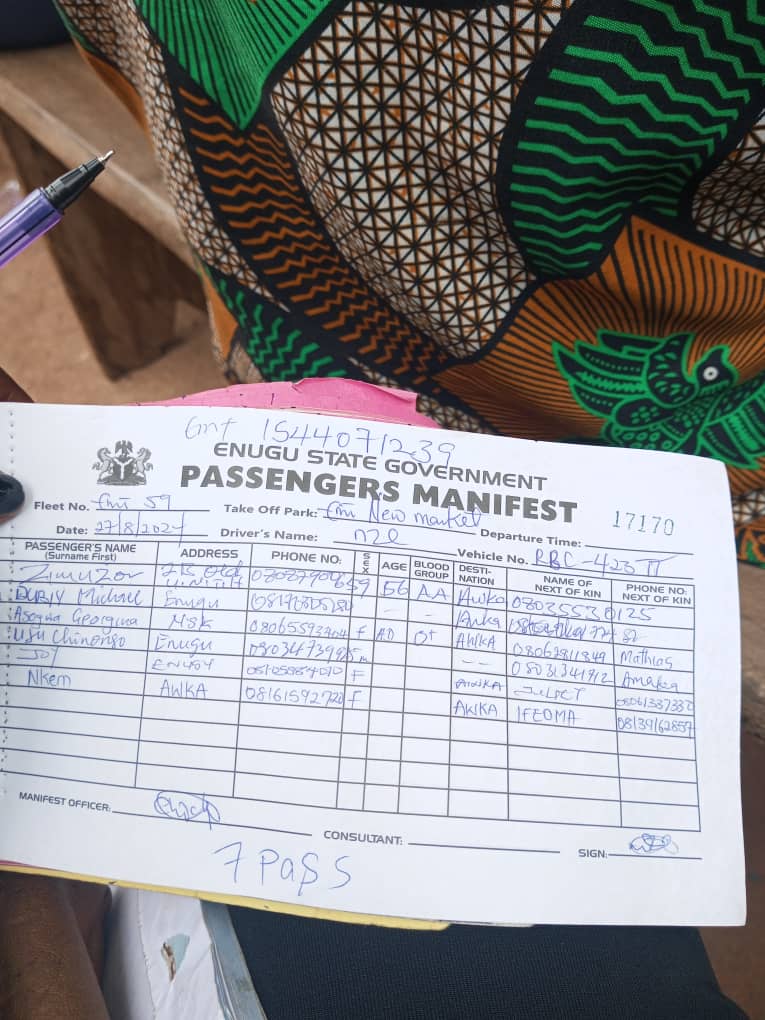 Gmt 1544071239
ENUGU STATE GOVERNMENT
PASSENGERS MANIFEST
17170
Fleet No. Emi 59 Take Off Park: Emi New market Departure Time:
Date: 27/8/2024 Driver's Name: nze Vehicle No. RBC-423
PASSENGER'S NAME (Surname First) ADDRESS PHONE NO: SEX AGE BLOOD GROUP DESTINATION NAME OF NEXT OF KIN PHONE NO: NEXT OF KIN
Zimuzor 56 AA Awka 08035530125
Michael Enugu - - Awka
Georgina Nsk F O+ AWKA 08062811849 Mathias
Chinonso Enugu m -- 08031341912 Amaka
JOY ENUGU F AWKA 08061337337
Nkem AWKA 08161592720 F AWKA IFEOMA 08139162857
MANIFEST OFFICER: CONSULTANT: SIGN:
7 PASS